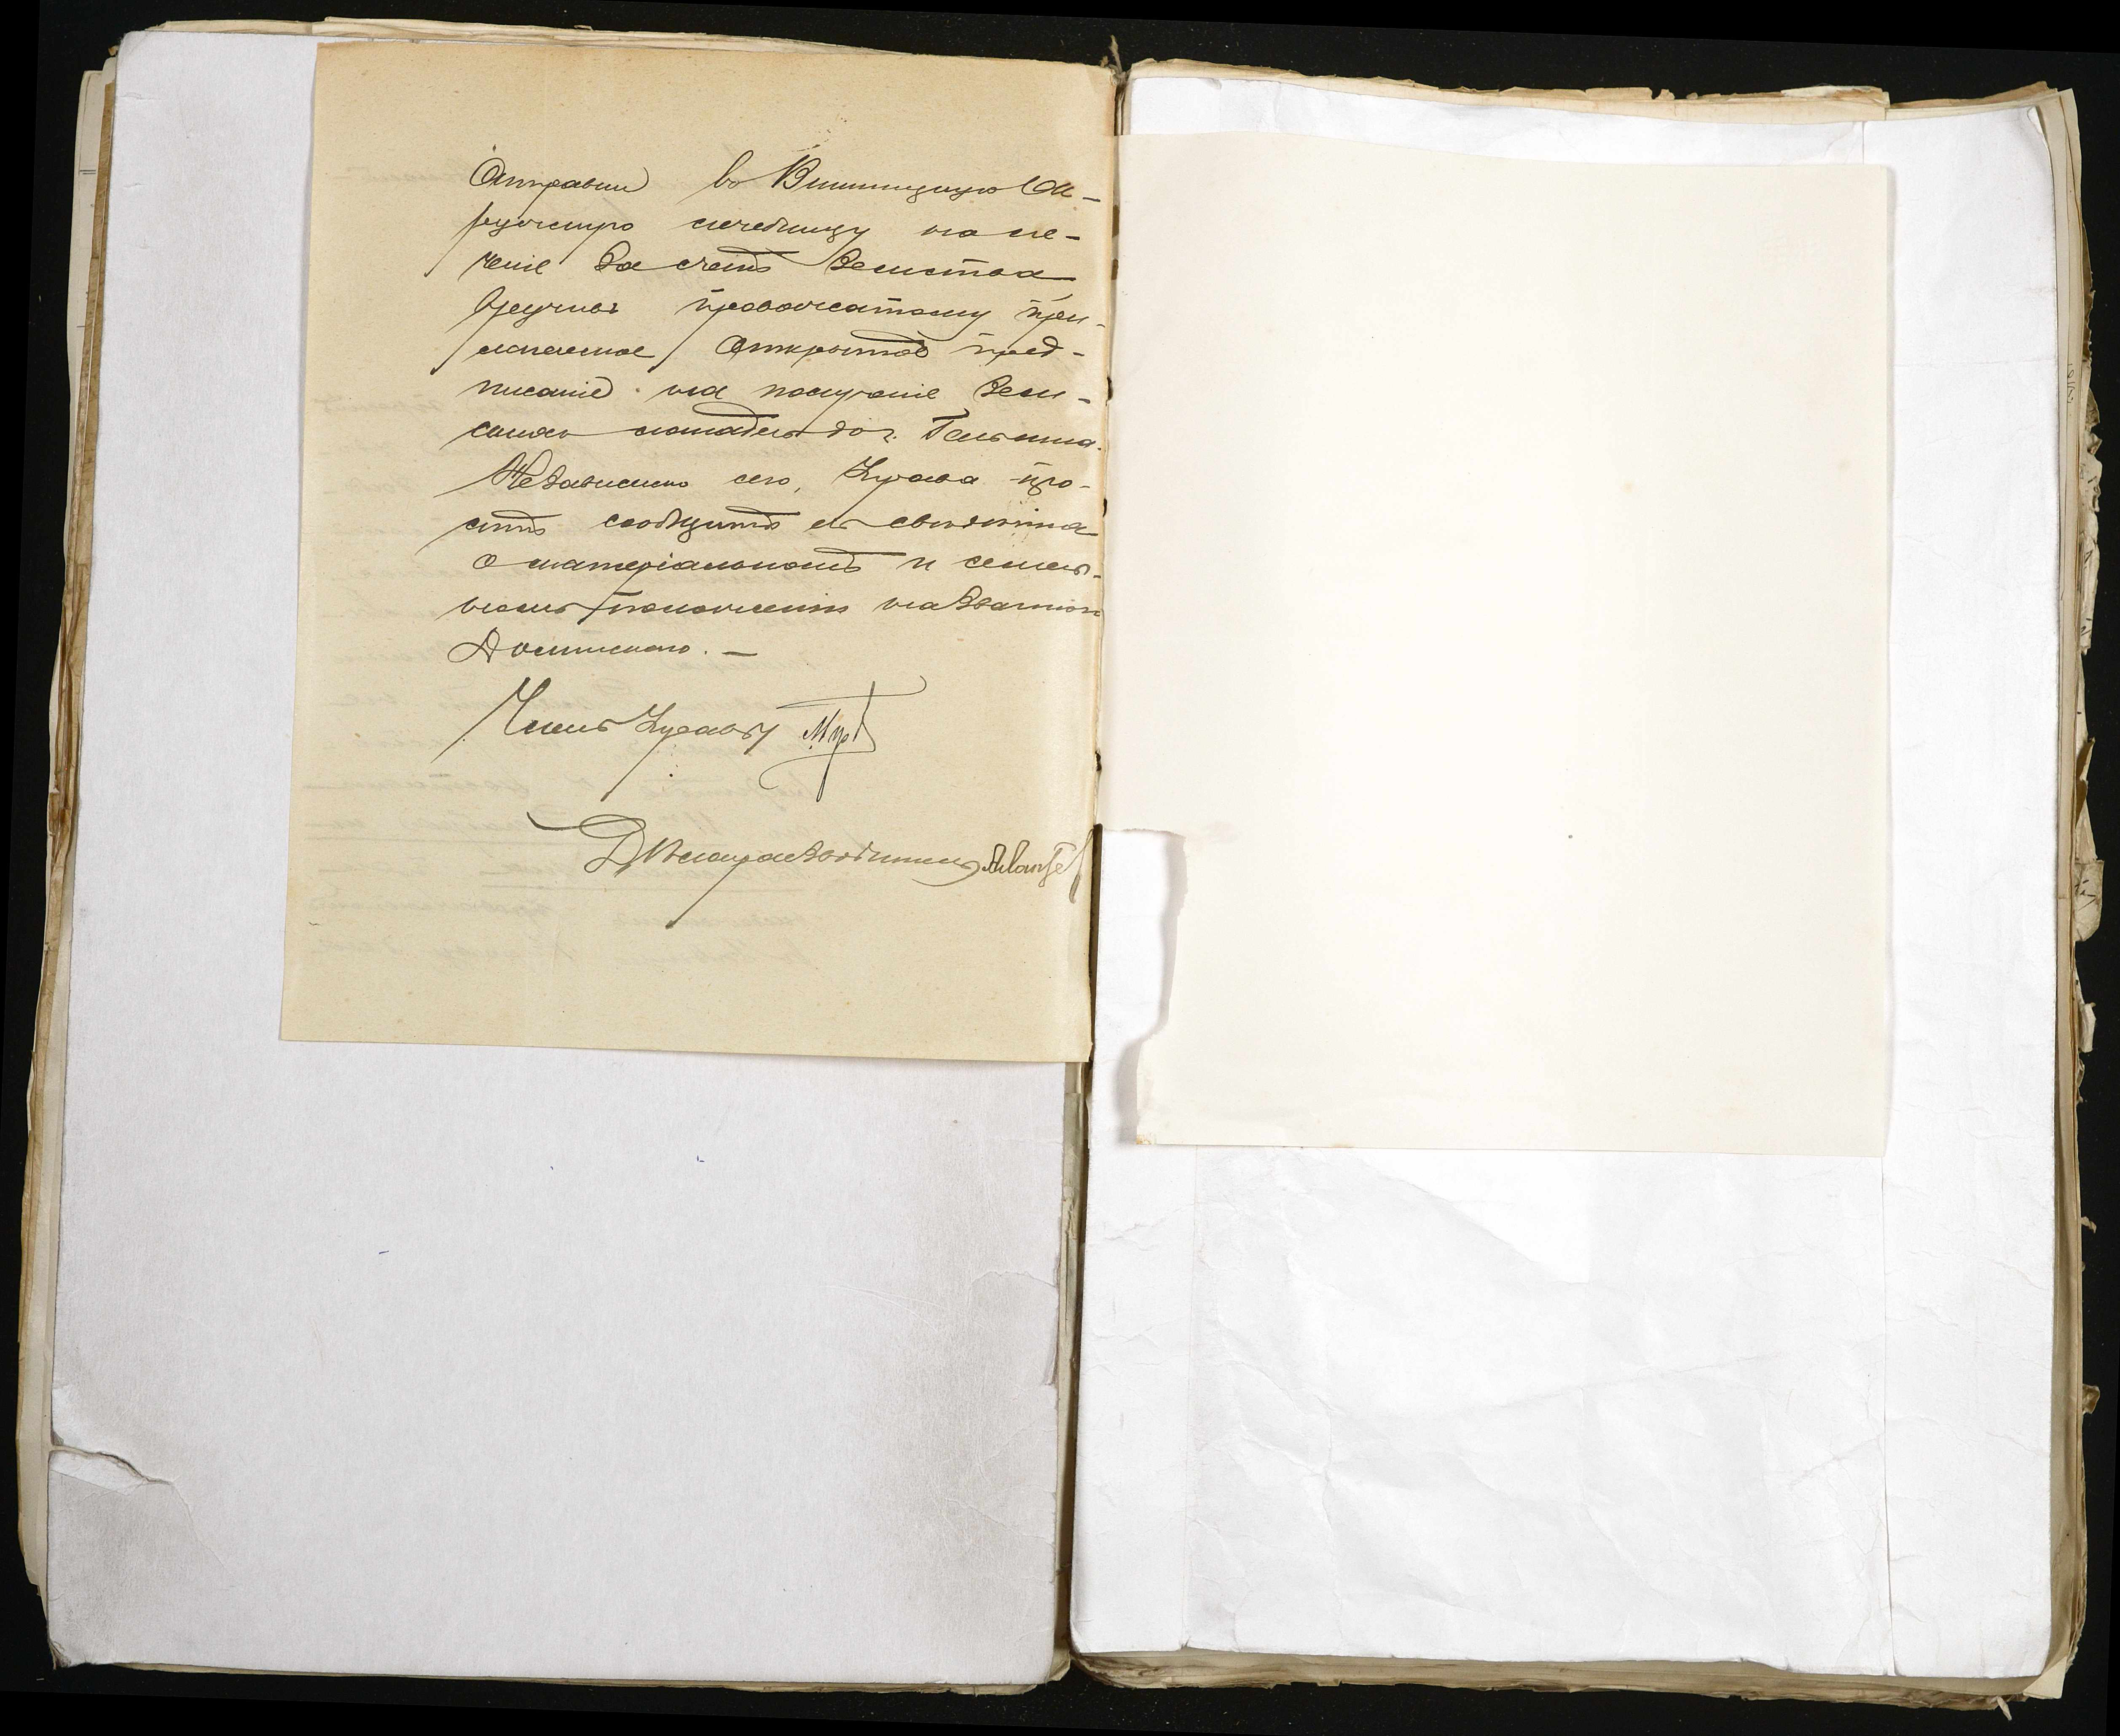 Отправки въ Винницкую Ок-
ружную лечебницу на ле-
ченіе за счетъ Земства
вручивъ провожатому при-
лагаемое открытое пред-
писаніе на полученіе Зем-
скихъ лошадей до г. Гайсина.
Независимо сего, Управа про-
ситъ сообщить ей свѣдѣнія
о матеріальномъ и семей-
номъ положеніи названнаго
Членъ Управы
Дѣлопроизводитель